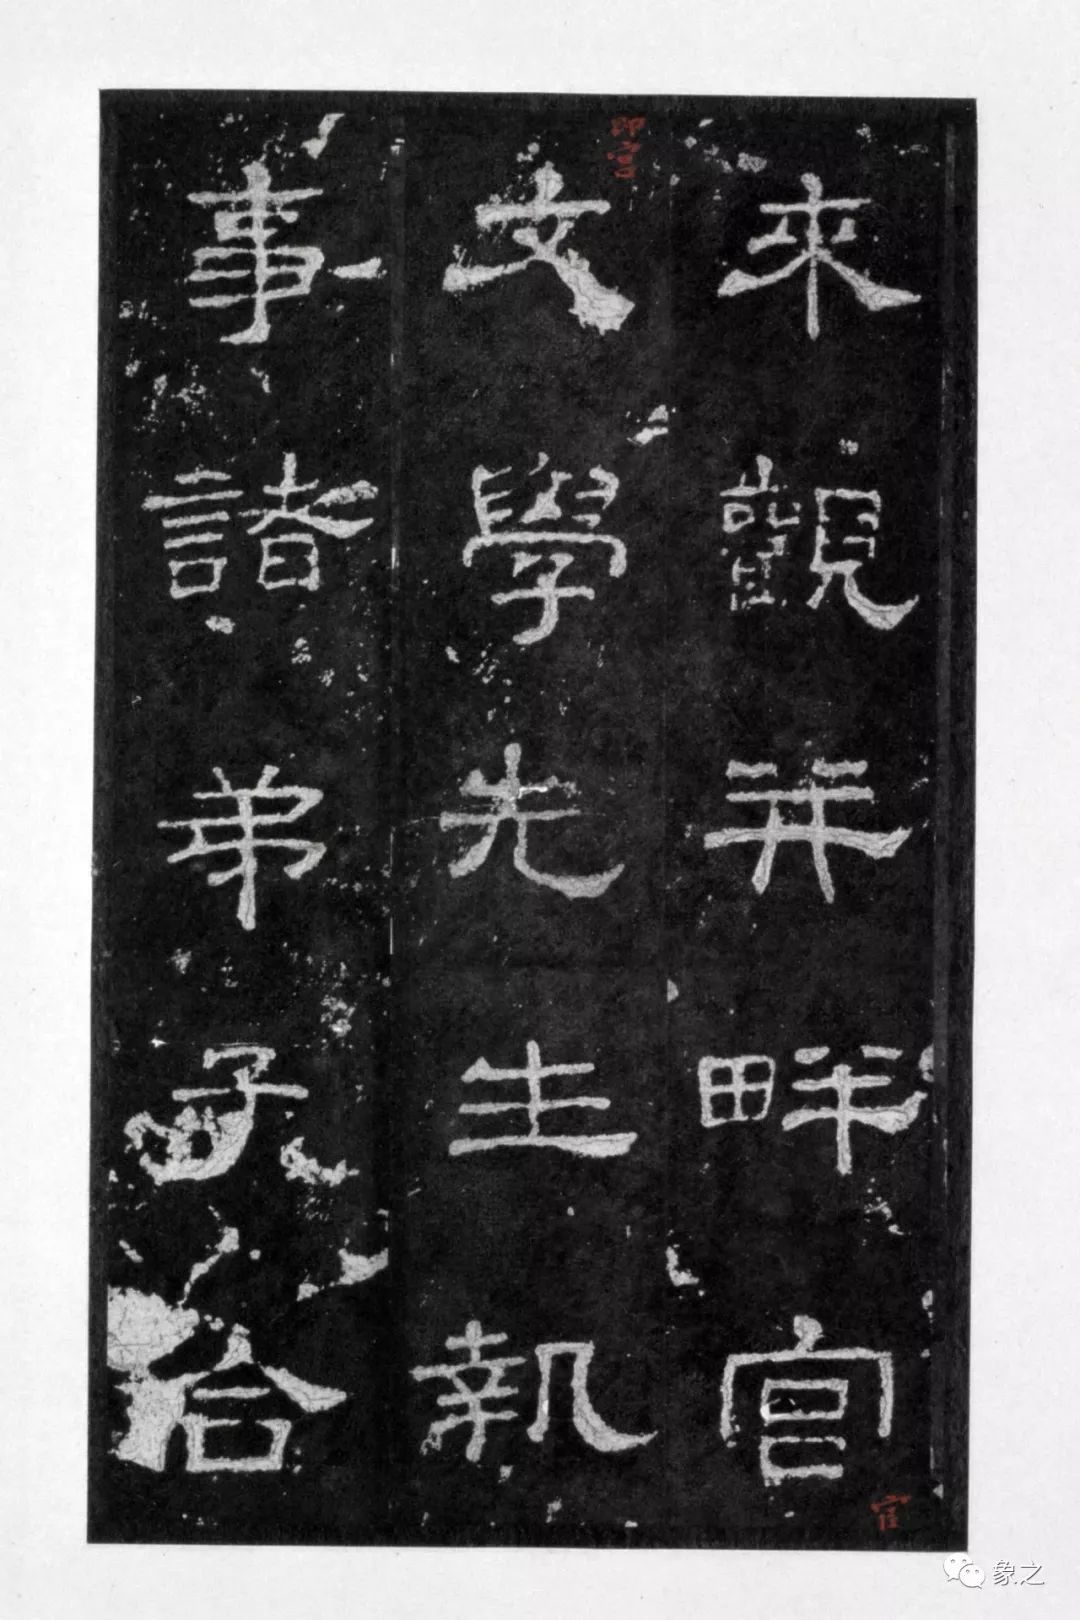 來觀并畔官
文學先生執
事諸弟子合
象之